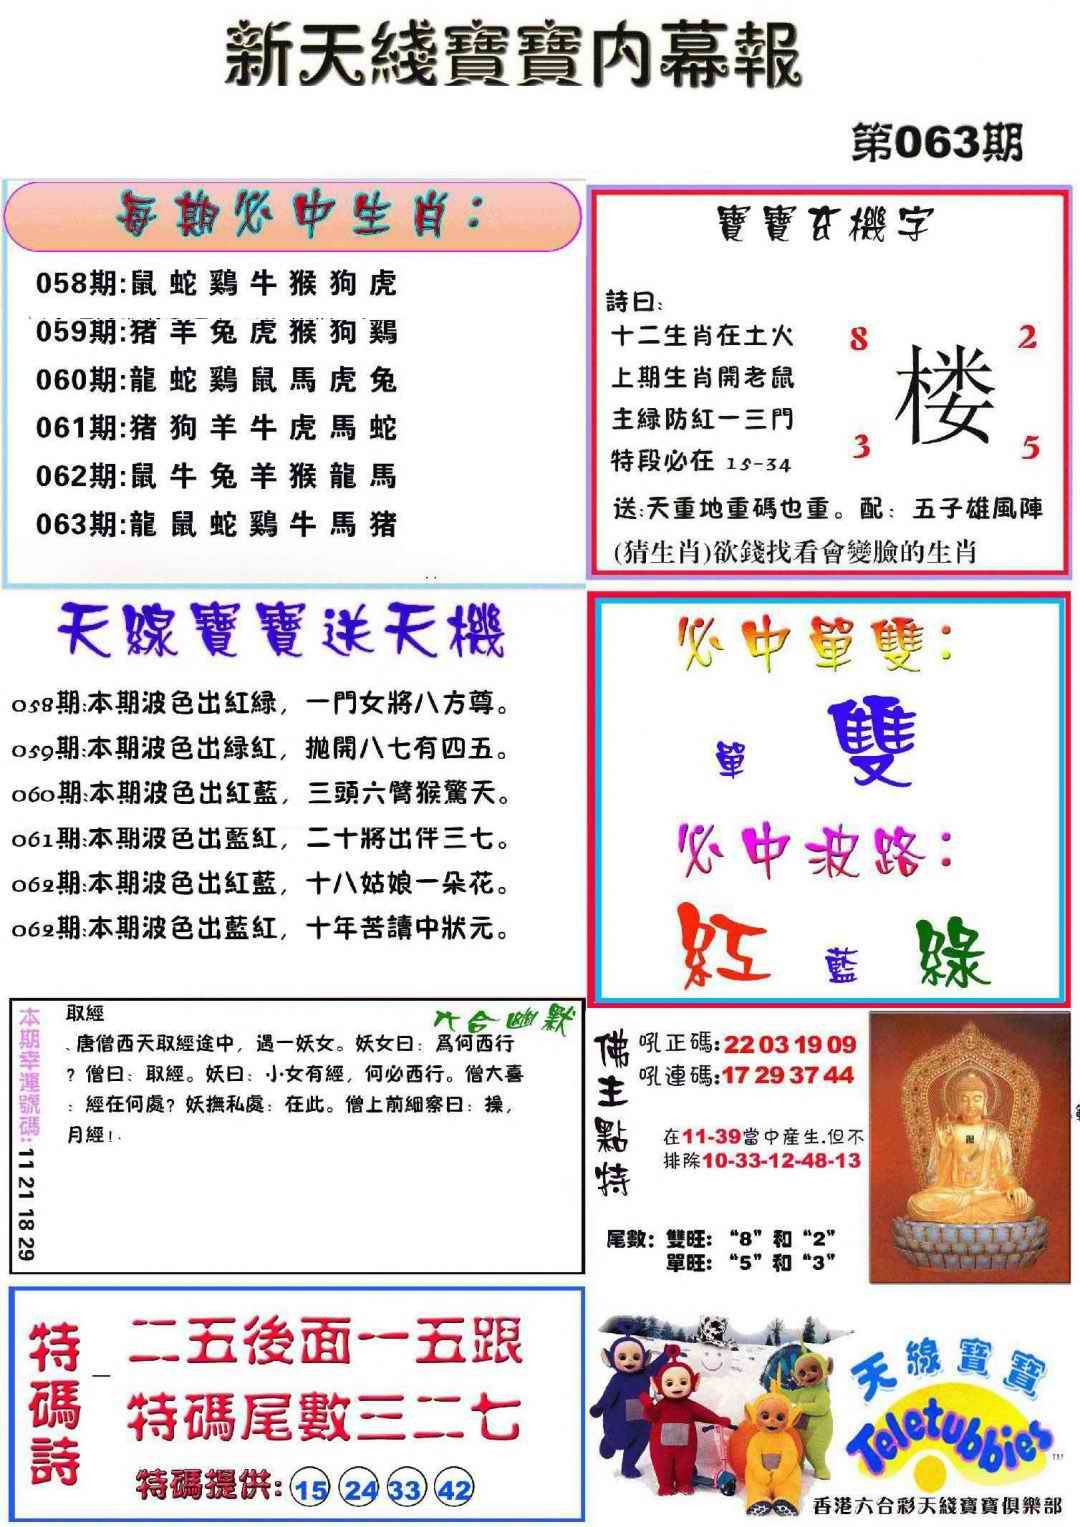 新天綫寶寶内幕報
第063期
每期必中生肖：
058期:鼠 蛇 鷄 牛 猴 狗 虎
059期:猪 羊 兔 虎 猴 狗 鷄
060期:龍 蛇 鷄 鼠 馬 虎 兔
061期:猪 狗 羊 牛 虎 馬 蛇
062期:鼠 牛 兔 羊 猴 龍 馬
063期:龍 鼠 蛇 鷄 牛 馬 猪
寶寶玄機字
詩曰:
十二生肖在土火
上期生肖開老鼠
主緑防紅一三門
特段必在 15-34
8 2
楼
3 5
送:天重地重碼也重。配：五子雄風陣
(猜生肖)欲錢找看會變臉的生肖
天線寶寶送天機
058期:本期波色出紅緑，一門女將八方尊。
059期:本期波色出緑紅，抛開八七有四五。
060期:本期波色出紅藍，三頭六臂猴驚天。
061期:本期波色出藍紅，二十將出伴三七。
062期:本期波色出紅藍，十八姑娘一朵花。
062期:本期波色出藍紅，十年苦讀中狀元。
必中單雙：
單 雙
必中波路：
紅 藍 綠
本期幸運號碼: 11 21 18 29
六合幽默
取經
、唐僧西天取經途中，遇一妖女。妖女曰：爲何西行
？僧曰：取經。妖曰：小女有經，何必西行。僧大喜
：經在何處？妖撫私處：在此。僧上前細察曰：操，
月經！.
佛主點特
吼正碼:22 03 19 09
吼連碼:17 29 37 44
在11-39當中産生.但不
排除10-33-12-48-13
尾數：雙旺：“8”和“2”
單旺：“5”和“3”
特碼詩
二五後面一五跟
特碼尾數三二七
特碼提供: 15 24 33 42
天線寶寶
Teletubbies
TM
香港六合彩天綫寶寶俱樂部